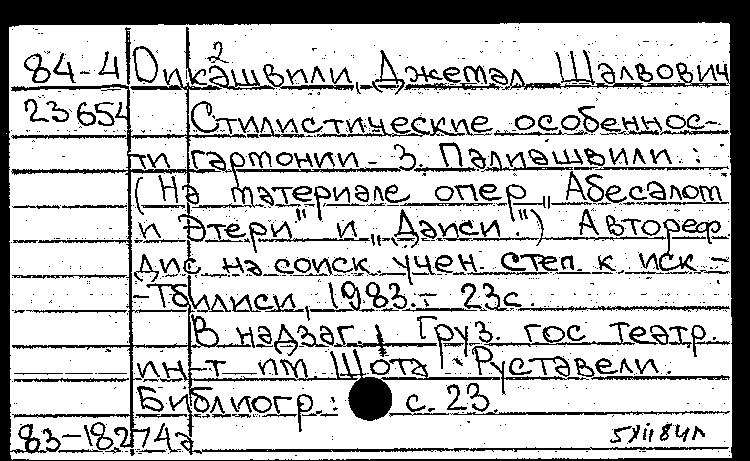 84-4 Оикашвили, Джемал Шалвович
23654 Стилистические особеннос-
ти гармонии З. Палиашвили :
(На материале опер „Абесалом
и Этери" и „Даиси".) Автореф
дис на соиск учен. степ к иск -
- Тбилиси, 1983. - 23с.
В надзаг. : Груз. гос театр.
ин-т им. Шота Руставели.
Библиогр.: с. 23.
83-18274а